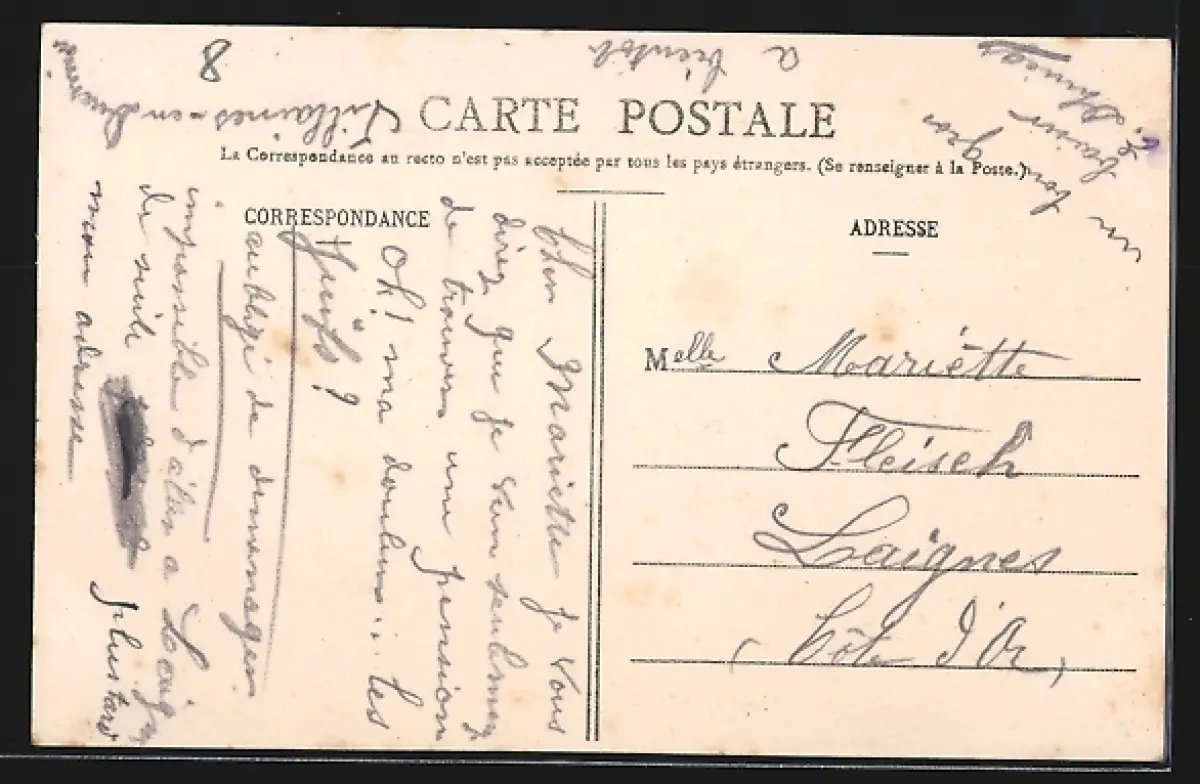 CARTE POSTALE
La Correspondance au recto n'est pas acceptée par tous les pays étrangers. (Se renseigner à la Poste.)
CORRESPONDANCE
ADRESSE
Melle Mariette
Fleisch
Laignes
(Côte d'Or)
Cher Mariette je vous
direz que je vien seulmen
de trouver une pension
Oh! ma douleur... les
Juifs?
aubligi de demenager
impossible d'aller a Laig
de suite
mon adresse plustard
8
Villaines-en-Duesmois
a bientot
un bon gros
baiser